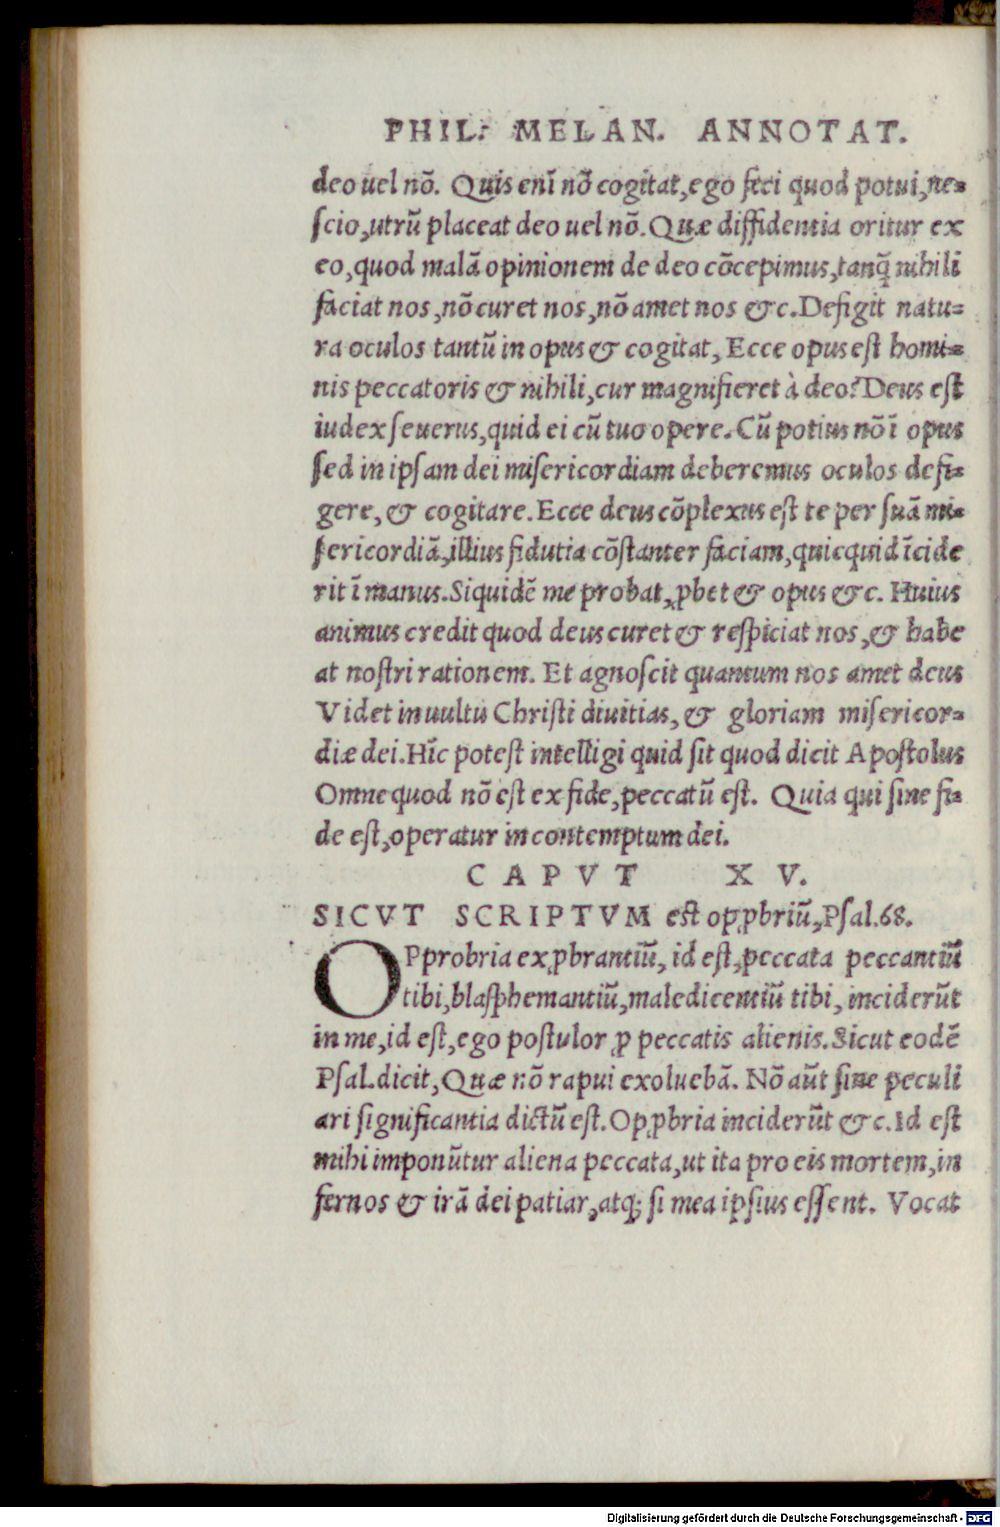 PHIL. MELAN. ANNOTAT.
deo uel nō. Quis enī nō cogitat, ego feci quod potui, ne-
ſcio, utrū placeat deo uel nō. Quæ diffidentia oritur ex
eo, quod malā opinionem de deo cōcepimus, tanq̄ nihili
faciat nos, nō curet nos, nō amet nos &c. Defigit natu-
ra oculos tantū in opus & cogitat, Ecce opus eſt homi-
nis peccatoris & nihili, cur magnifieret à deo? Deus eſt
iudex ſeuerus, quid ei cū tuo opere. Cū potius nō ī opus
ſed in ipſam dei miſericordiam deberemus oculos defi-
gere, & cogitare. Ecce deus cōplexus eſt te per ſuā mi-
ſericordiā, illius fidutia cōſtanter faciam, quicquid īcide
rit ī manus. Siquidē me probat, ꝓbet & opus &c. Huius
animus credit quod deus curet & reſpiciat nos, & habe
at noſtri rationem. Et agnoſcit quantum nos amet deus
Videt in uultu Chriſti diuitias, & gloriam miſericor-
diæ dei. Hīc poteſt intelligi quid ſit quod dicit Apoſtolus
Omne quod nō eſt ex fide, peccatū eſt. Quia qui ſine fi-
de eſt, operatur in contemptum dei.
CAPVT XV.
SICVT SCRIPTVM eſt opꝓbriū, Pſal. 68.
OPprobria exꝓbrantiū, id eſt, peccata peccantiū
tibi, blaſphemantiū, maledicentiū tibi, inciderūt
in me, id eſt, ego poſtulor ꝓ peccatis alienis. Sicut eodē
Pſal. dicit, Quæ nō rapui exoluebā. Nō aūt ſine peculi
ari ſignificantia dictū eſt. Opꝓbria inciderūt &c. Id eſt
mihi imponūtur aliena peccata, ut ita pro eis mortem, in
fernos & irā dei patiar, atq; ſi mea ipſius eſſent. Vocat
Digitalisierung gefördert durch die Deutsche Forschungsgemeinschaft - DFG